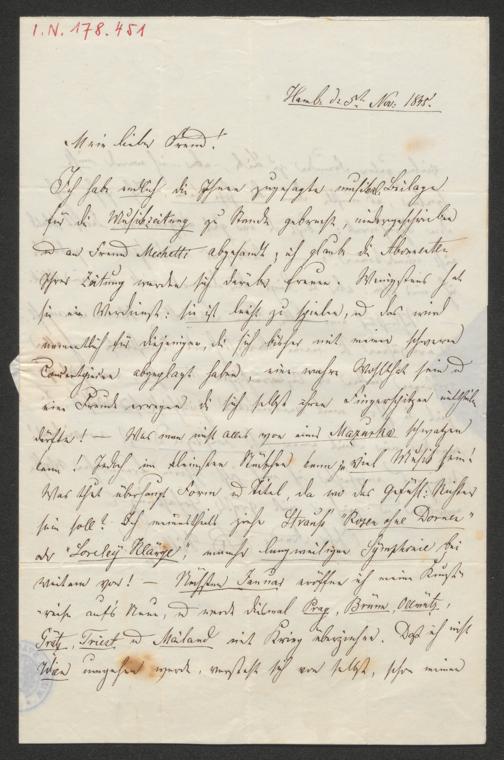 I.N. 178.451
Hamb. d. 5ten Nov. 1845.
Mein lieber Freund!
Ich habe endlich die Ihnen zugesagte musikal. Beilage
für die Musikzeitung zu Stande gebracht, niedergeschrieben
und an Freund Mechetti abgesandt; ich glaube die Abonnenten
Ihrer Zeitung werden sich darüber freuen. Wenigstens hat
sie ein Verdienst: sie ist leicht zu spielen, und das wird
namentlich für diejenigen, die sich bisher mit meinen schweren
Compositionen abgeplagt haben, eine wahre Wohlthat sein und
eine Freude erregen die sich selbst ihren Fingerspitzen mittheilen
dürfte! — Was man nicht alles von einer Mazurka schwatzen
kann! Jedoch im kleinsten Stückchen kann ja viel Musik sein!
Was thut überhaupt Form und Titel, da wo das Gefühl: Richter
sein soll? Ich meinestheils ziehe Strauß' "Rosen ohne Dornen"
oder "Loreley Klänge", mancher langweiligen Symphonie bei
weitem vor! — Nächsten Januar eröffne ich meine Kunst-
-reise aufs Neue, und werde diesmal Prag, Brünn, Ollmütz,
Grätz, Triest und Mailand mit Krieg überziehen. Daß ich nicht
Wien umgehen werde, versteht sich von selbst, schon meinen